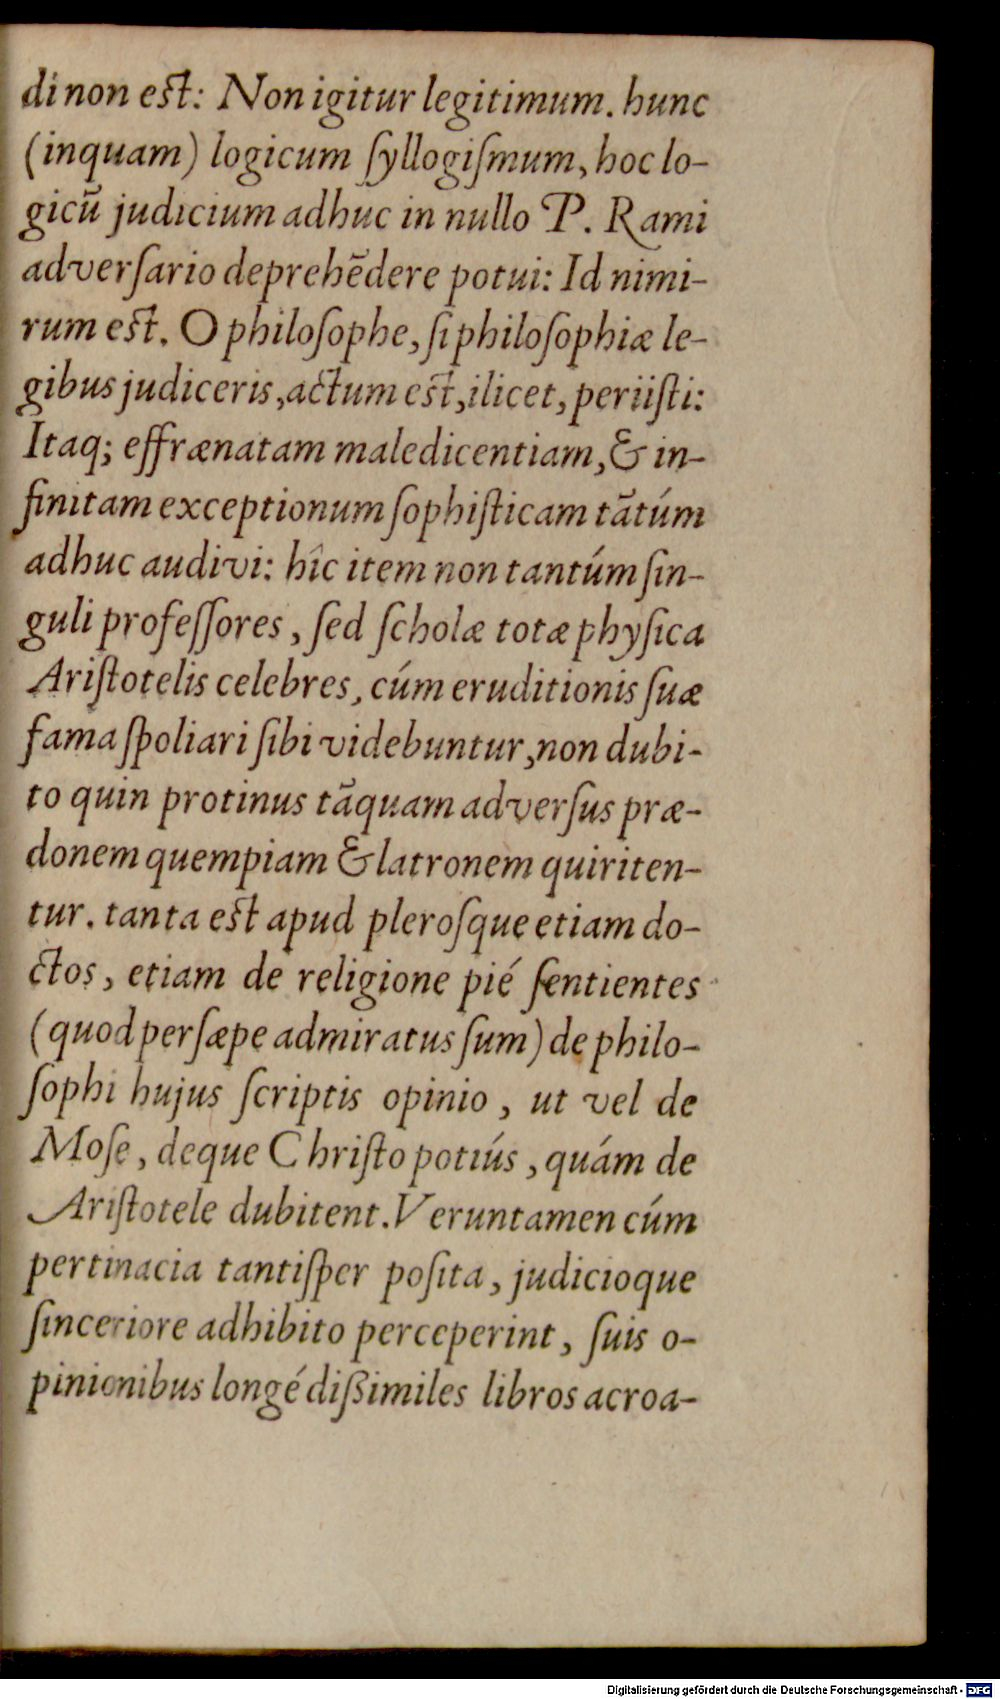 di non est: Non igitur legitimum. hunc
(inquam) logicum ſyllogiſmum, hoc lo-
gicū judicium adhuc in nullo P. Rami
adverſario deprehēdere potui: Id nimi-
rum est. O philoſophe, ſi philoſophiæ le-
gibus judiceris, actum est, ilicet, periiſti:
Itaq; effrænatam maledicentiam, & in-
finitam exceptionum ſophiſticam tātúm
adhuc audivi: hîc item non tantúm ſin-
guli profeſſores, ſed ſcholæ totæ phyſica
Ariſtotelis celebres, cúm eruditionis ſuæ
fama ſpoliari ſibi videbuntur, non dubi-
to quin protinus tāquam adverſus præ-
donem quempiam & latronem quiriten-
tur. tanta est apud pleroſque etiam do-
ctos, etiam de religione pié ſentientes
(quod perſæpe admiratus ſum) de philo-
ſophi hujus ſcriptis opinio, ut vel de
Moſe, deque Chriſto potiús, quám de
Ariſtotele dubitent. Veruntamen cúm
pertinacia tantiſper poſita, judicioque
ſinceriore adhibito perceperint, ſuis o-
pinionibus longé dißimiles libros acroa-
Digitalisierung gefördert durch die Deutsche Forschungsgemeinschaft - DFG